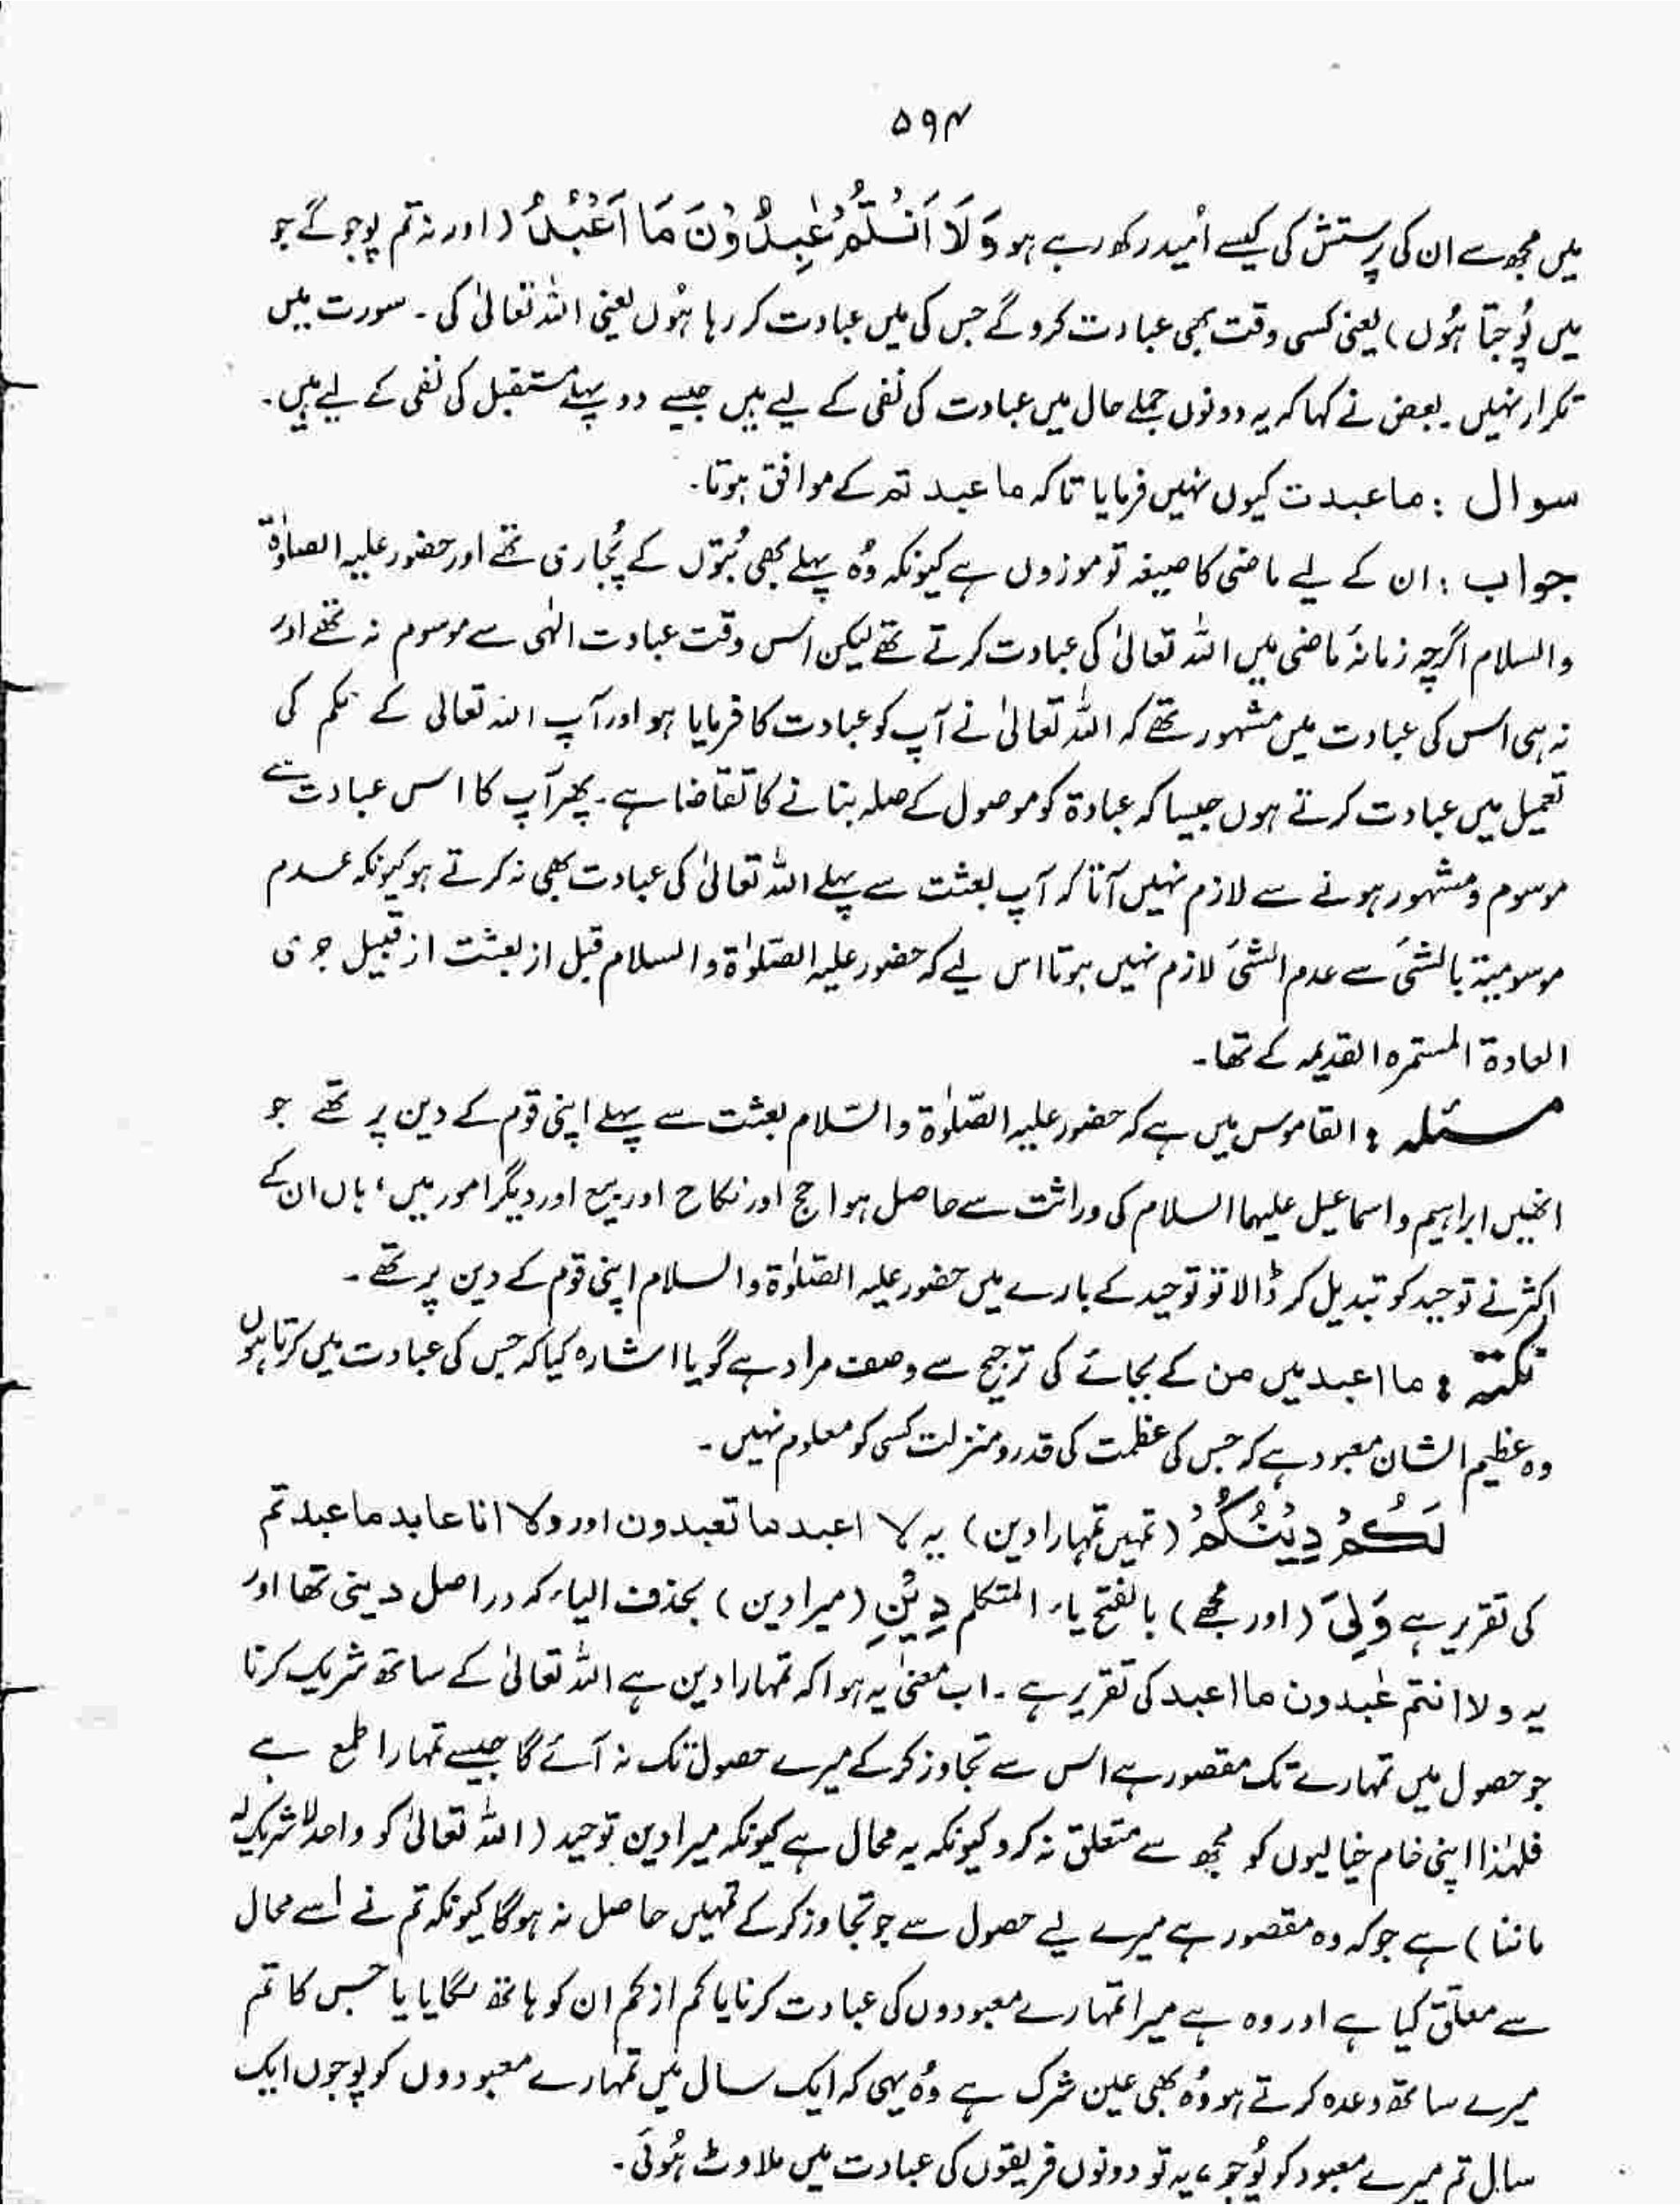 ۵۹۴
میں مجھ سے ان کی پرستش کی کیسے اُمید رکھ رہے ہو وَلَا اَنْتُمْ عٰبِدُوْنَ مَا اَعْبُدُ (اور نہ تم پوجو گے جو
میں پُوجتا ہُوں) یعنی کسی وقت بھی عبادت کرو گے جس کی میں عبادت کر رہا ہُوں یعنی اللہ تعالیٰ کی۔ سورت میں
تکرار نہیں۔ بعض نے کہا کہ یہ دونوں جملے حال میں عبادت کی نفی کے لیے ہیں جیسے دو پہلے مستقبل کی نفی کے لیے ہیں۔
سوال : ما عبدت کیوں نہیں فرمایا تاکہ ما عبد تم کے موافق ہوتا۔
جواب : ان کے لیے ماضی کا صیغہ تو موزوں ہے کیونکہ وُہ پہلے بھی بُتوں کے پُجاری تھے اور حضور علیہ الصلوٰۃ
والسلام اگرچہ زمانۂ ماضی میں اللہ تعالیٰ کی عبادت کرتے تھے لیکن اس وقت عبادت الٰہی سے موسوم نہ تھے اور
نہ ہی اس کی عبادت میں مشہور تھے کہ اللہ تعالیٰ نے آپ کو عبادت کا فرمایا ہو اور آپ اللہ تعالی کے حکم کی
تعمیل میں عبادت کرتے ہوں جیسا کہ عبادۃ کو موصول کے صلہ بنانے کا تقاضا ہے۔ پھر آپ کا اس عبادت سے
موسوم و مشہور ہونے سے لازم نہیں آتا کہ آپ بعثت سے پہلے اللہ تعالیٰ کی عبادت بھی نہ کرتے ہو کیونکہ عدم
موسومیۃ بالشیَ سے عدم الشیَ لازم نہیں ہوتا اس لیے کہ حضور علیہ الصّلوٰۃ والسلام قبل از بعثت از قبیل جری
العادۃ المستمرہ القدیمہ کے تھا۔
مسئلہ : القاموس میں ہے کہ حضور علیہ الصّلوٰۃ والسّلام بعثت سے پہلے اپنی قوم کے دین پر تھے جو
انھیں ابراہیم و اسماعیل علیہما السلام کی وراثت سے حاصل ہوا حج اور نکاح اور بیع اور دیگر امور میں، ہاں ان کے
اکثر نے توحید کو تبدیل کر ڈالا تو توحید کے بارے میں حضور علیہ الصّلوٰۃ والسلام اپنی قوم کے دین پر تھے۔
نکتہ : ما اعبد میں من کے بجائے کی ترجیح سے وصف مراد ہے گویا اشارہ کیا کہ جس کی عبادت میں کرتا ہوں
وہ عظیم الشان معبود ہے کہ جس کی عظمت کی قدر و منزلت کسی کو معلوم نہیں۔
لَكُمْ دِيْنُكُمْ (تمہیں تمہارا دین) یہ لا اعبد ما تعبدون اور ولا انا عابد ما عبدتم
کی تقریر ہے وَلِیَ (اور مجھے) بالفتح یاء المتکلم دِیْنِ (میرا دین) بحذف الیاء کہ دراصل دینی تھا اور
یہ ولا انتم عٰبدون ما اعبد کی تقریر ہے۔ اب معنیٰ یہ ہوا کہ تمہارا دین ہے اللہ تعالیٰ کے ساتھ شریک کرنا
جو حصول میں تمہارے تک مقصور ہے اس سے تجاوز کر کے میرے حصول تک نہ آئے گا جیسے تمہارا طمع ہے
فلہٰذا اپنی خام خیالیوں کو مجھ سے متعلق نہ کرو کیونکہ یہ محال ہے کیونکہ میرا دین توحید (اللہ تعالیٰ کو واحد لا شریک لہ
ماننا) ہے جو کہ وہ مقصور ہے میرے لیے حصول سے جو تجاوز کر کے تمہیں حاصل نہ ہوگا کیونکہ تم نے اسے محال
سے معلق کیا ہے اور وہ ہے میرا تمہارے معبودوں کی عبادت کرنا یا کم از کم ان کو ہاتھ لگایا یا جس کا تم
میرے ساتھ وعدہ کرتے ہو وُہ بھی عین شرک ہے وُہ یہی کہ ایک سال میں تمہارے معبودوں کو پوجوں ایک
سال تم میرے معبود کو پُوجو، یہ تو دونوں فریقوں کی عبادت میں ملاوٹ ہُوئی۔